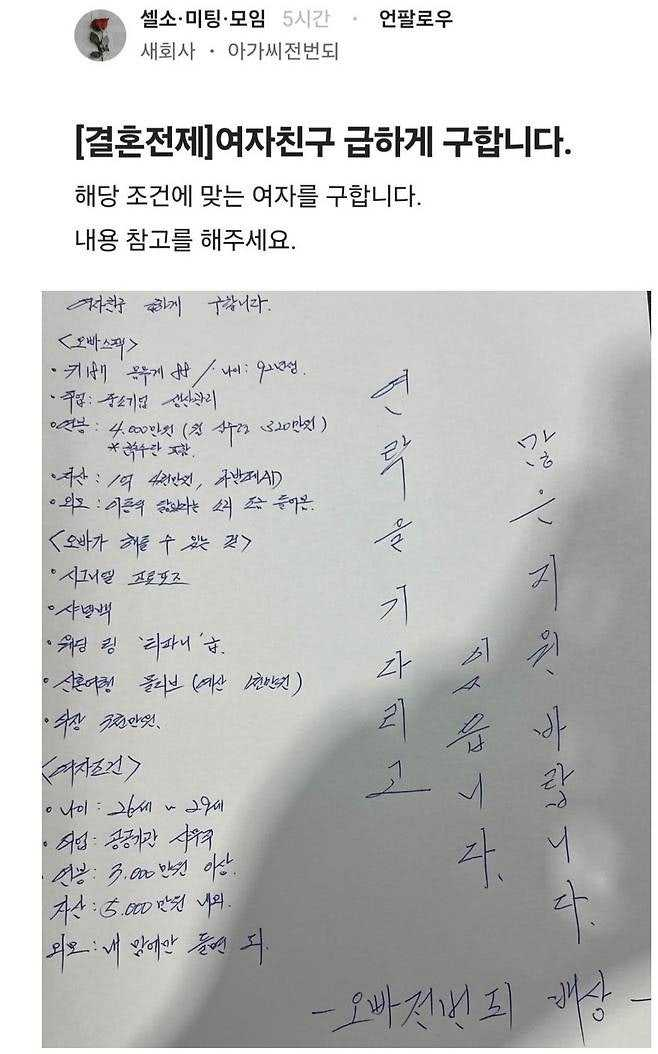 셀소·미팅·모임 5시간 · 언팔로우
새회사 · 아가씨전번되
[결혼전제]여자친구 급하게 구합니다.
해당 조건에 맞는 여자를 구합니다.
내용 참고를 해주세요.
여자친구 급하게 구합니다.
<오빠스펙>
• 키 몸무게 / 나이: 92년생.
• 직업: 중소기업 생산관리
• 연봉: 4.000만원 (월 실수령 320만원)
* 특수수당 포함.
• 자산: 1억 4천만원,
• 외모: 닮았다는 소리 조금 들어봄.
<오빠가 해줄 수 있는 것>
• 시그니엘 프로포즈
• 샤넬백
• 웨딩 링 '티파니'급.
• 신혼여행 몰디브 (예산 1천만원)
• 천만원.
<여자조건>
• 나이: 26세 ~ 29세
• 직업: 공공기관 사무직
• 연봉: 3.000만원 이상.
자산: 5.000만원 내외.
외모: 내 맘에만 들면 돼.
연락을 기다리고
있읍니다.
많은 지원 바랍니다.
- 오빠전번되 배상 -